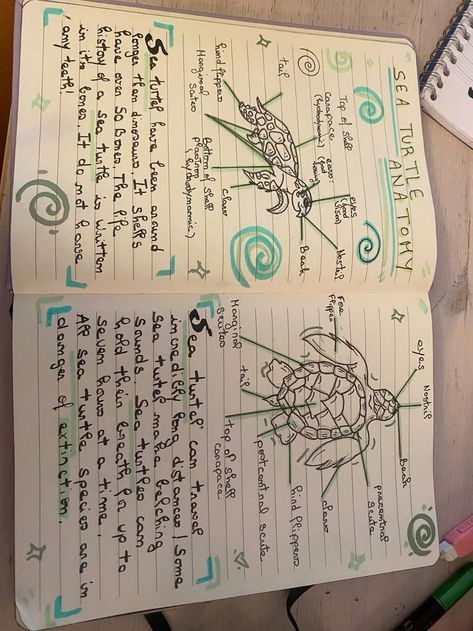 SEA TURTLE
ANATOMY
Top of shell
Carapace
(hydrodynamic)
ears:
(good
hearing)
eyes
(good
vision)
Nostril
Beak
tail
hind flippers
Marginal
Scutes
Bottom of shell
plastron
(hydrodynamic)
claw
Sea turtel have been around
longer then dinosaurs. It shells
have over 50 bones. The life
history of a sea turtle is written
in its bones. It do not have
any teeth!
Fore
flipper
eyes
Nostril
Beak
precentral
scute
claw
hind flippers
postcentral scute
top of shell
carapace
tail
Marginal
scutes
Sea turtel can travel
incredibly long distances! Some
sea turtel make belching
sounds. Sea turtles can
hold their breath for up to
seven hours at a time.
All sea turtle species are in
danger of extination.